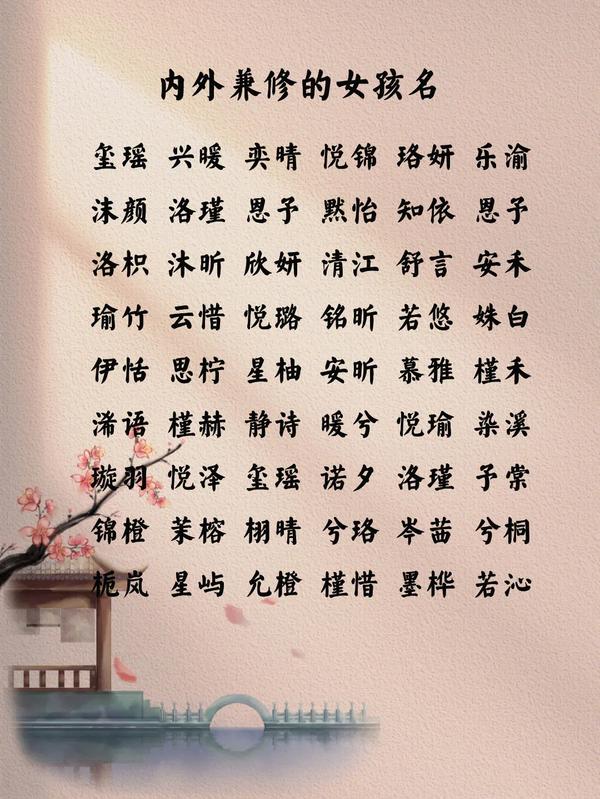 内外兼修的女孩名
玺瑶 兴暖 奕晴 悦锦 珞妍 乐渝
沫颜 洛瑾 恩予 默怡 知依 恩予
洛枳 沐昕 欣妍 清江 舒言 安禾
瑜竹 云惜 悦璐 铭昕 若悠 姝白
伊恬 思柠 星柚 安昕 慕雅 槿禾
浠语 槿赫 静诗 暖兮 悦瑜 染溪
璇羽 悦泽 玺瑶 诺夕 洛瑾 子棠
锦橙 茉榕 栩晴 兮珞 岑茁 兮桐
栀岚 星屿 允橙 槿惜 墨桦 若沁